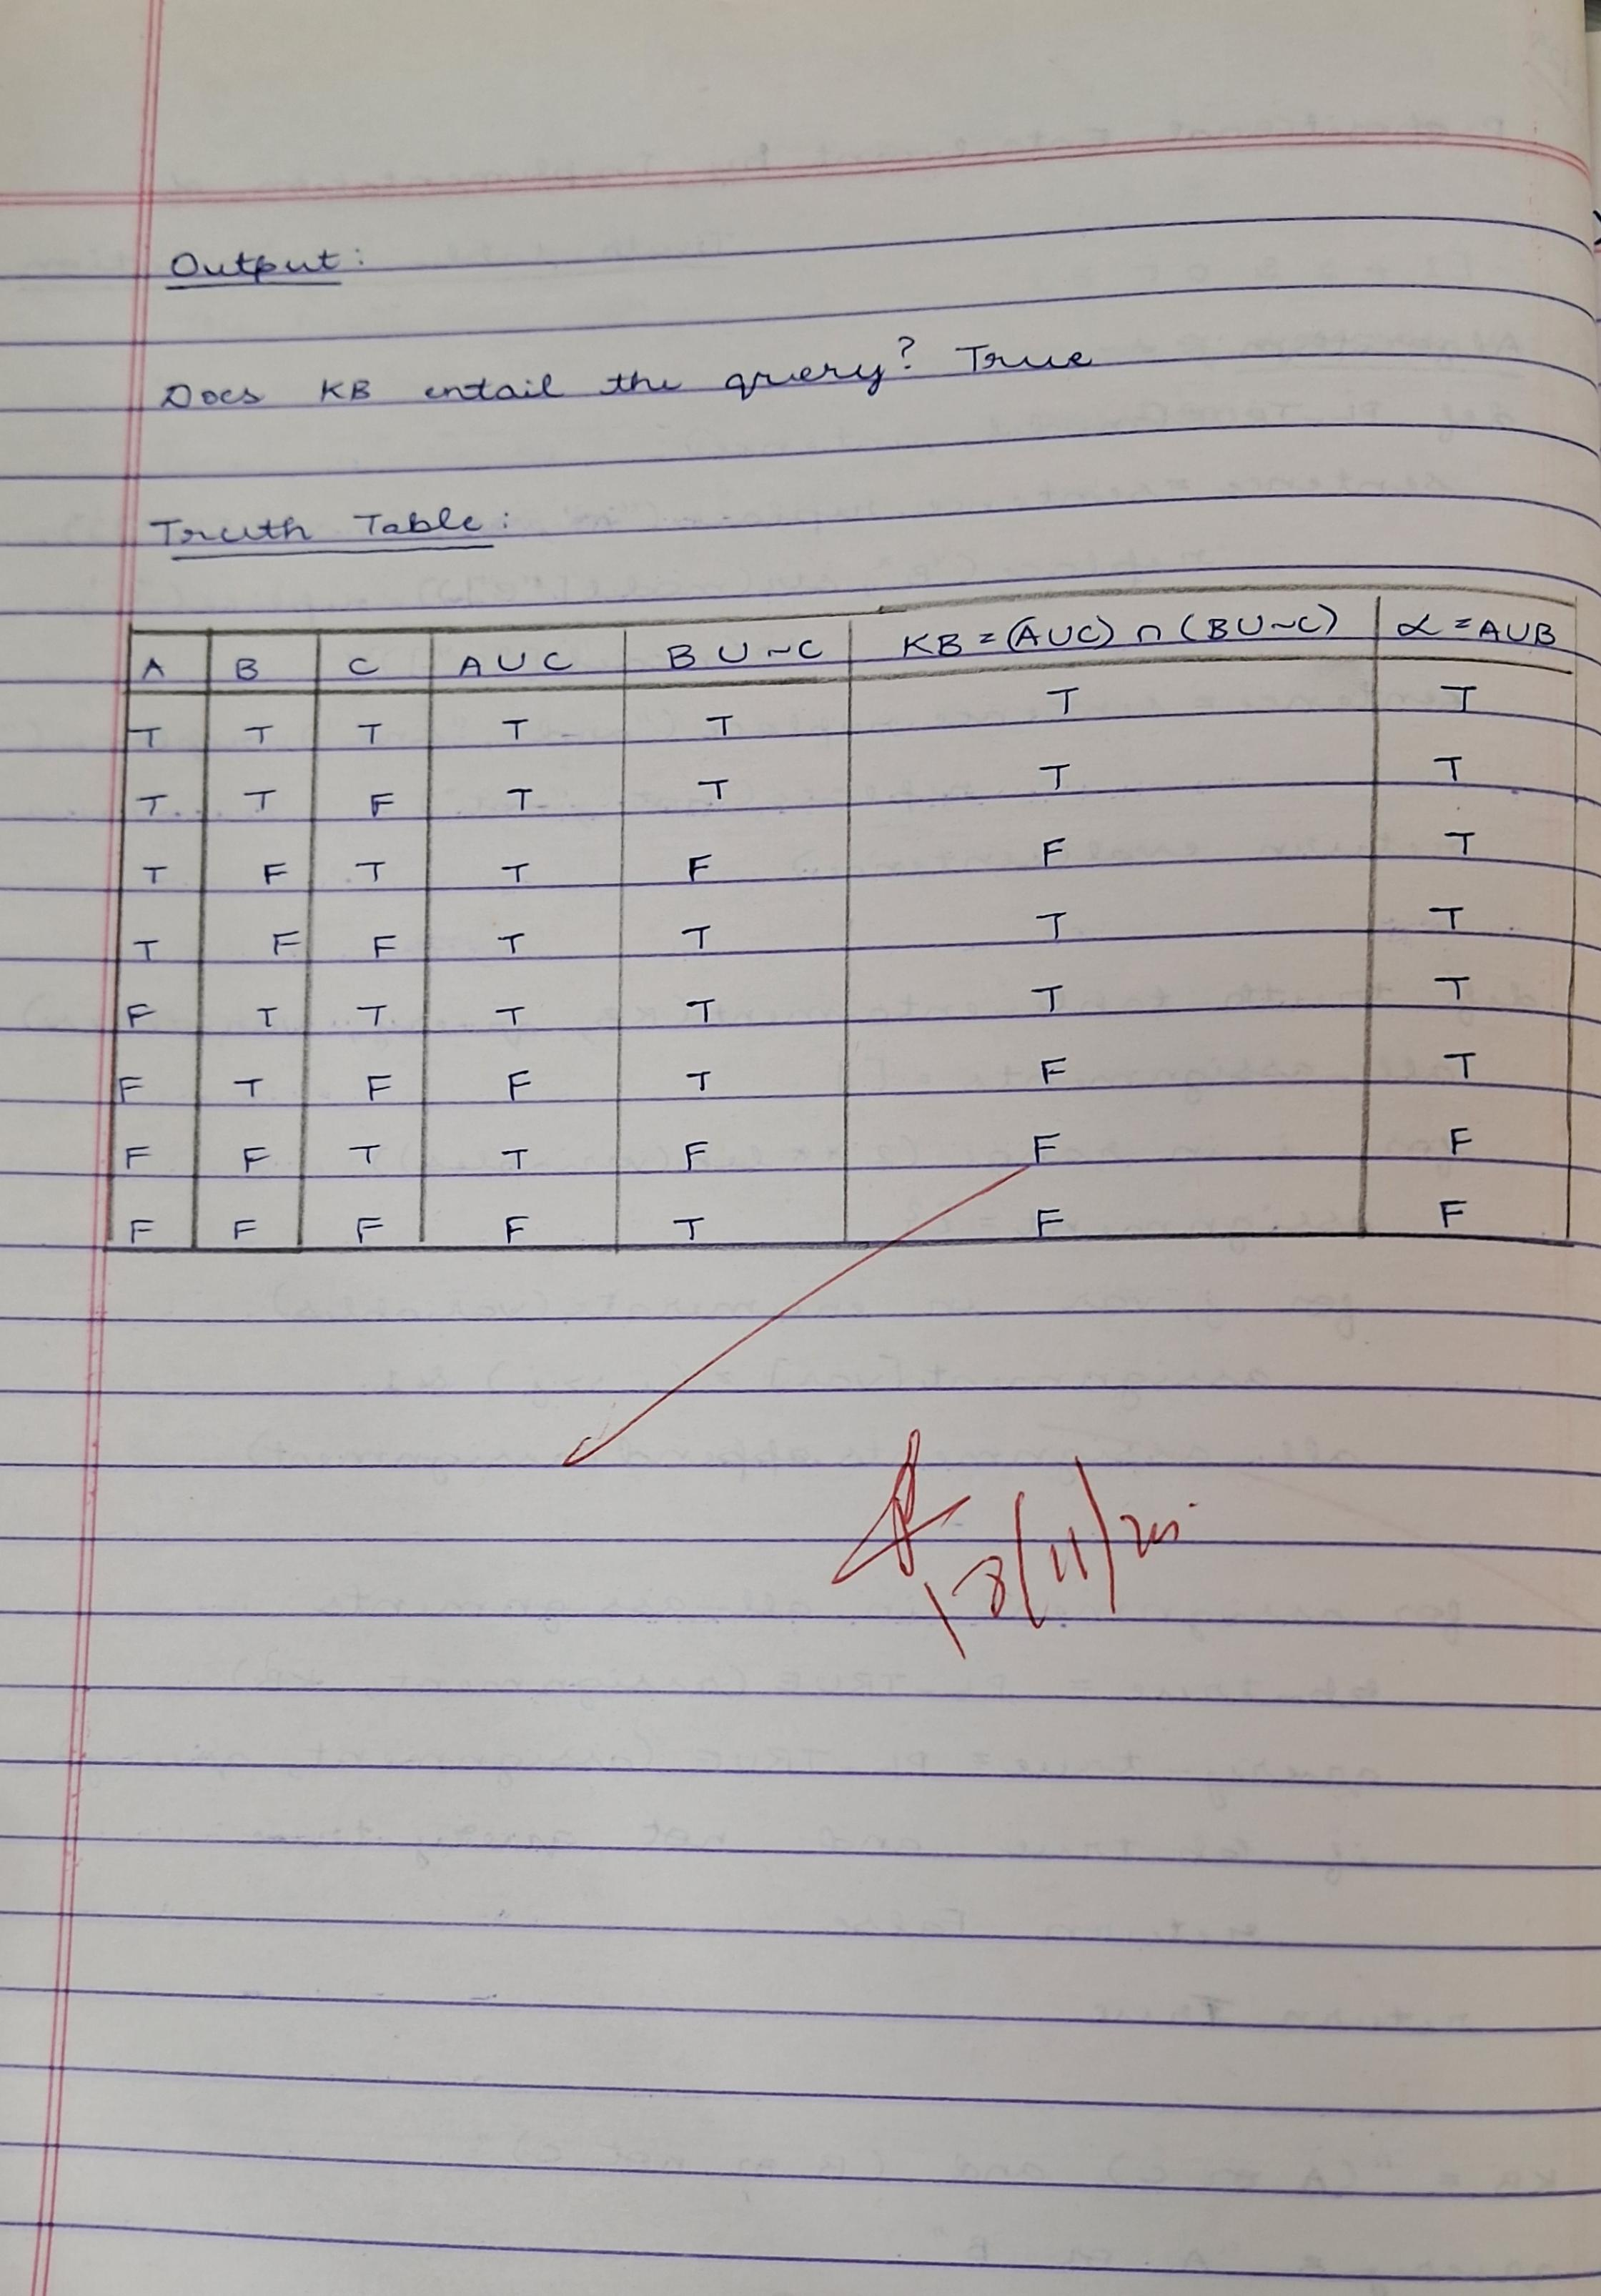 Output:
Does KB entail the query? True
Truth Table:
A B C A U C B U ~C KB = (AUC) ∩ (BU~C) α = AUB
T T T T T T T
T T F T T T T
T F T T F F T
T F F T T T T
F T T T T T T
F T F F T F T
F F T T F F F
F F F F T F F
18/11/25